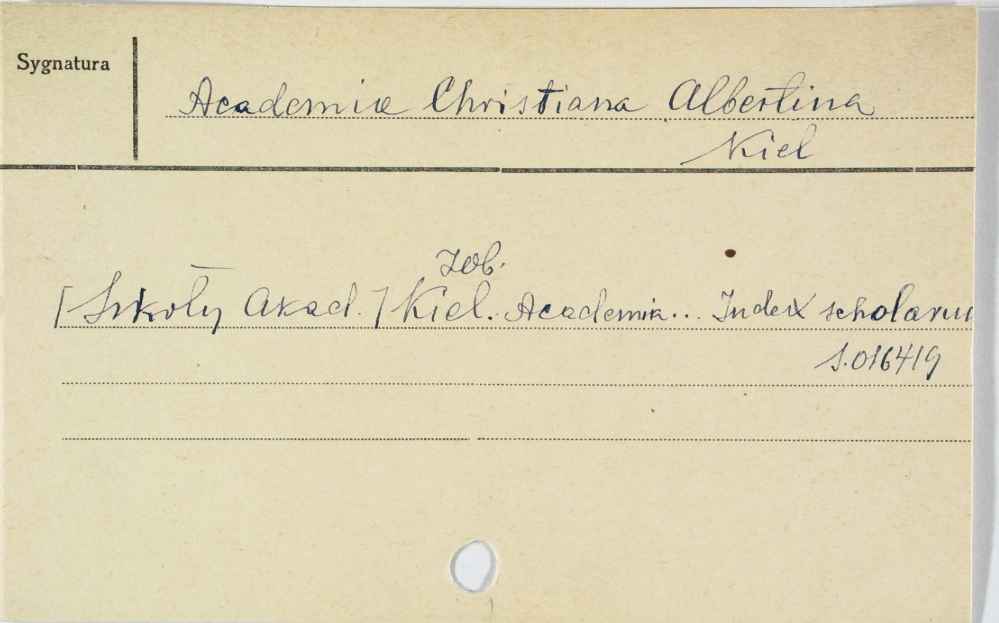 Sygnatura
Academia Christiana Albertina
Kiel
Zob.
[Szkoły Akad.] Kiel. Academia... Index scholarum
S.016419